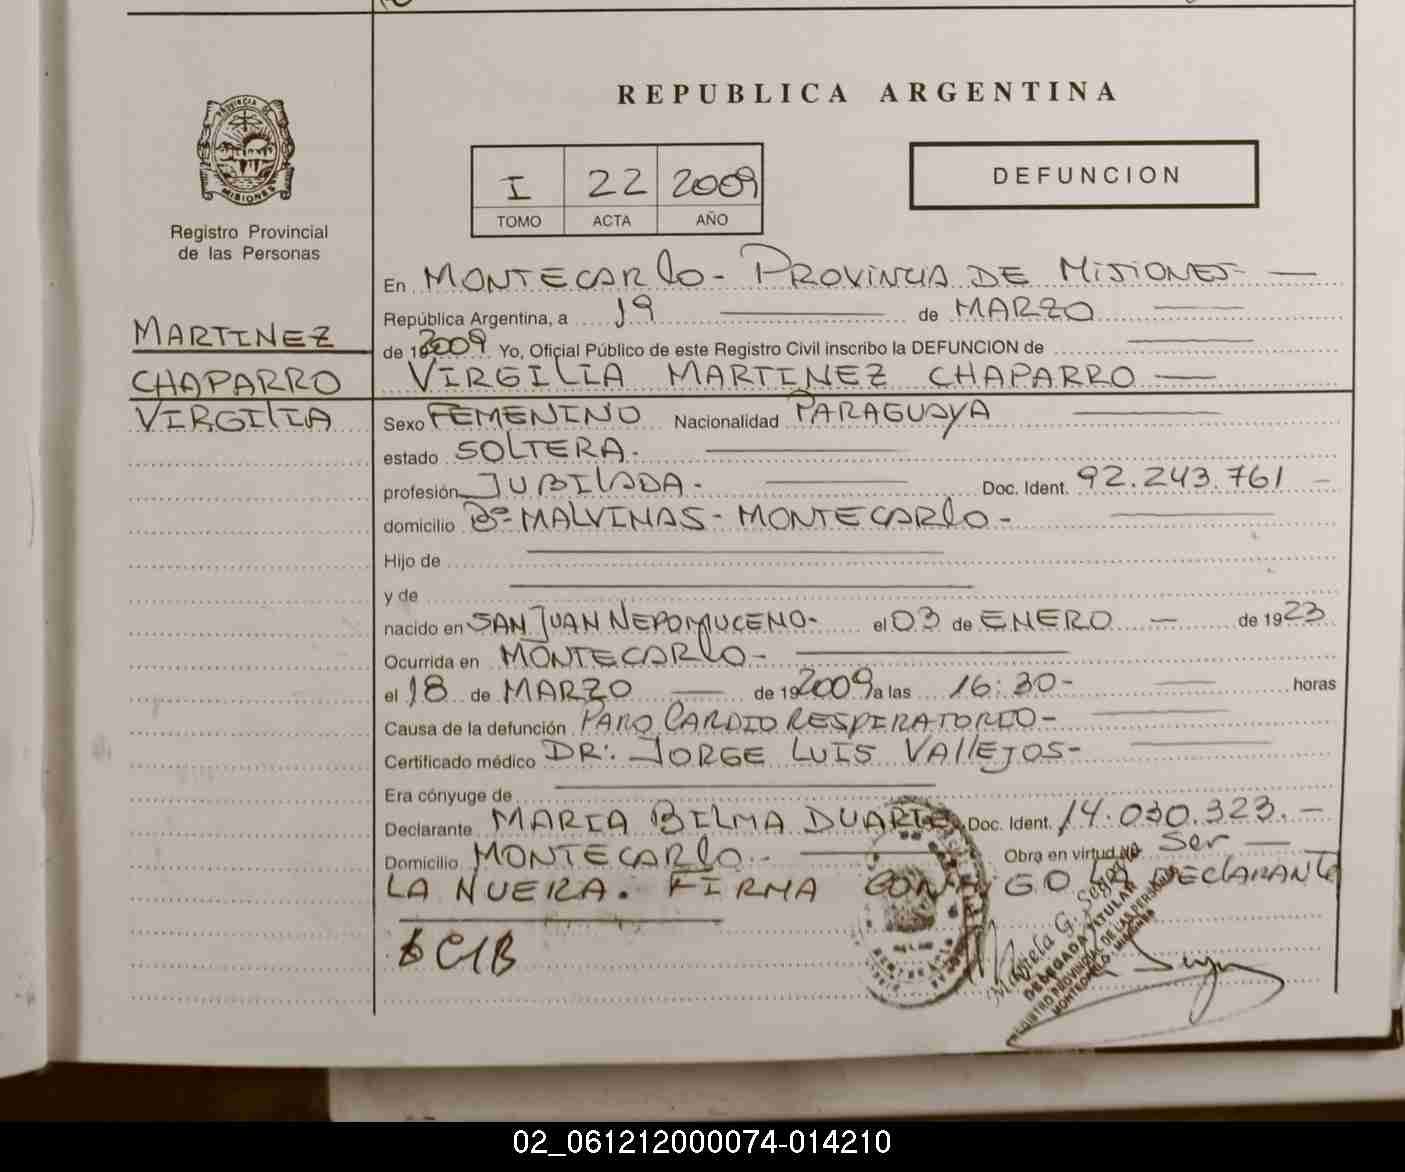 REPUBLICA ARGENTINA
I 22 2009
TOMO ACTA AÑO
DEFUNCION
PROVINCIA DE
MISIONES
Registro Provincial
de las Personas
MARTINEZ
CHAPARRO
VIRGILIA
En MONTECARLO - PROVINCIA DE MISIONES -
República Argentina, a 19 de MARZO
de 2009 Yo, Oficial Público de este Registro Civil inscribo la DEFUNCION de
VIRGILIA MARTINEZ CHAPARRO
Sexo FEMENINO Nacionalidad PARAGUAYA
estado SOLTERA.
profesión JUBILADA - Doc. Ident. 92.243.761 -
domicilio Bº MALVINAS - MONTECARLO -
Hijo de
y de
nacido en SAN JUAN NEPOMUCENO - el 03 de ENERO - de 1923
Ocurrida en MONTECARLO -
el 18 de MARZO de 2009 a las 16:30 - horas
Causa de la defunción PARO CARDIO RESPIRATORIO -
Certificado médico DR: JORGE LUIS VALLEJOS -
Era cónyuge de
Declarante MARIA BILMA DUARTE Doc. Ident. 14.030.323. -
Domicilio MONTECARLO - Obra en virtud de Ser
LA NUERA. FIRMA CONMIGO LA DECLARANTE
DELEGADA TITULAR
REGISTRO PROVINCIAL DE LAS PERSONAS
MONTECARLO MISIONES
02_061212000074-014210